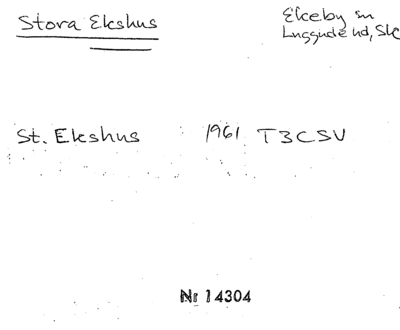 Stora Ekshus
Ekeby sn
Luggude hd, Sk
St. Ekshus 1961 T3CSV
Nr 14304